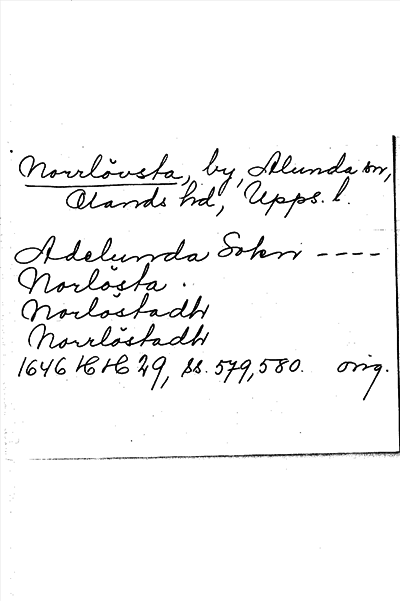 Norrlövsta, by, Alunda sn,
Olands hd, Upps. l.
Adelunda Sokn ----
Norlösta .
Norlöstadh
Norrlöstadh
1646 HH 29, ss. 579, 580. orig.